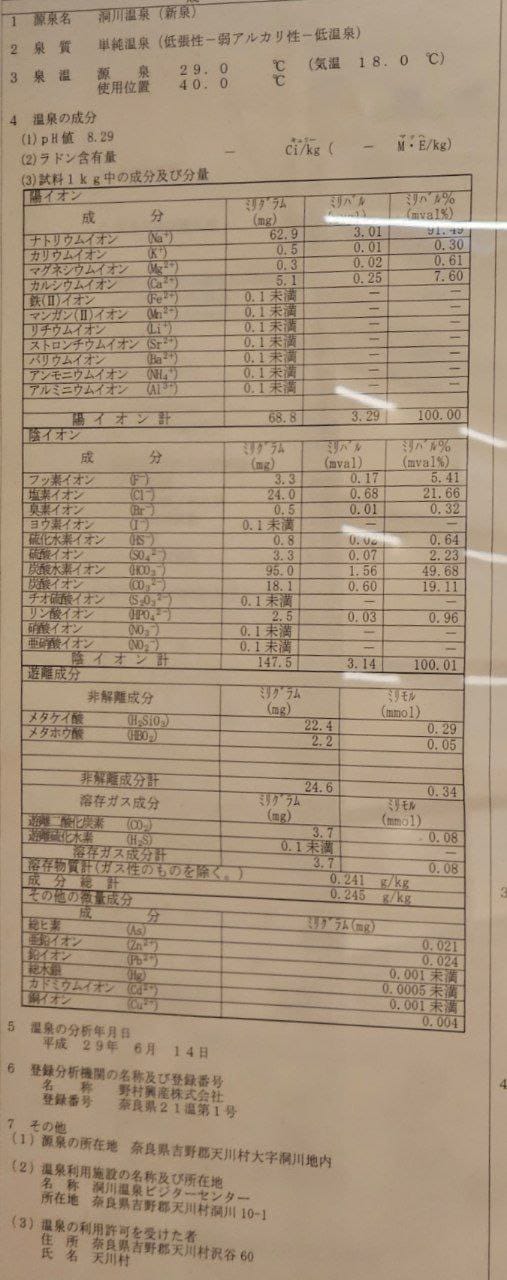 1 源泉名 洞川温泉（新泉）
2 泉質 単純温泉（低張性－弱アルカリ性－低温泉）
3 泉温 源泉 29.0 ℃ (気温 18.0 ℃)
使用位置 40.0 ℃
4 温泉の成分
(1)pH値 8.29
(2)ラドン含有量 － Ci/kg ( － M・E/kg)
(3)試料1kg中の成分及び分量
陽イオン
成分 ﾐﾘｸﾞﾗﾑ (mg) ﾐﾘﾊﾞﾙ (mval) ﾐﾘﾊﾞﾙ% (mval%)
ナトリウムイオン (Na⁺) 62.9 3.01 91.49
カリウムイオン (K⁺) 0.5 0.01 0.30
マグネシウムイオン (Mg²⁺) 0.3 0.02 0.61
カルシウムイオン (Ca²⁺) 5.1 0.25 7.60
鉄(Ⅱ)イオン (Fe²⁺) 0.1未満 － －
マンガン(Ⅱ)イオン (Mn²⁺) 0.1未満 － －
リチウムイオン (Li⁺) 0.1未満 － －
ストロンチウムイオン (Sr²⁺) 0.1未満 － －
バリウムイオン (Ba²⁺) 0.1未満 － －
アンモニウムイオン (NH₄⁺) 0.1未満 － －
アルミニウムイオン (Al³⁺) 0.1未満 － －
陽イオン計 68.8 3.29 100.00
陰イオン
成分 ﾐﾘｸﾞﾗﾑ (mg) ﾐﾘﾊﾞﾙ (mval) ﾐﾘﾊﾞﾙ% (mval%)
フッ素イオン (F⁻) 3.3 0.17 5.41
塩素イオン (Cl⁻) 24.0 0.68 21.66
臭素イオン (Br⁻) 0.5 0.01 0.32
ヨウ素イオン (I⁻) 0.1未満 － －
硫化水素イオン (HS⁻) 0.8 0.02 0.64
硫酸イオン (SO₄²⁻) 3.3 0.07 2.23
炭酸水素イオン (HCO₃⁻) 95.0 1.56 49.68
炭酸イオン (CO₃²⁻) 18.1 0.60 19.11
チオ硫酸イオン (S₂O₃²⁻) 0.1未満 － －
リン酸イオン (HPO₄²⁻) 2.5 0.03 0.96
硝酸イオン (NO₃⁻) 0.1未満 － －
亜硝酸イオン (NO₂⁻) 0.1未満 － －
陰イオン計 147.5 3.14 100.01
遊離成分
非解離成分 ﾐﾘｸﾞﾗﾑ (mg) ﾐﾘﾓﾙ (mmol)
メタケイ酸 (H₂SiO₃) 22.4 0.29
メタホウ酸 (HBO₂) 2.2 0.05
非解離成分計 24.6 0.34
溶存ガス成分 ﾐﾘｸﾞﾗﾑ (mg) ﾐﾘﾓﾙ (mmol)
遊離二酸化炭素 (CO₂) 3.7 0.08
遊離硫化水素 (H₂S) 0.1未満 －
溶存ガス成分計 3.7 0.08
溶存物質計(ガス性のものを除く。) 0.241 g/kg
成分総計 0.245 g/kg
その他の微量成分
成分 ﾐﾘｸﾞﾗﾑ(mg)
総ヒ素 (As) 0.021
亜鉛イオン (Zn²⁺) 0.024
鉛イオン (Pb²⁺) 0.001未満
総水銀 (Hg) 0.0005未満
カドミウムイオン (Cd²⁺) 0.001未満
銅イオン (Cu²⁺) 0.004
5 温泉の分析年月日
平成 29年 6月 14日
6 登録分析機関の名称及び登録番号
名称 野村興産株式会社
登録番号 奈良県21温第1号
7 その他
(1) 源泉の所在地 奈良県吉野郡天川村大字洞川地内
(2) 温泉利用施設の名称及び所在地
名称 洞川温泉ビジターセンター
所在地 奈良県吉野郡天川村洞川10-1
(3) 温泉の利用許可を受けた者
住所 奈良県吉野郡天川村沢谷60
氏名 天川村